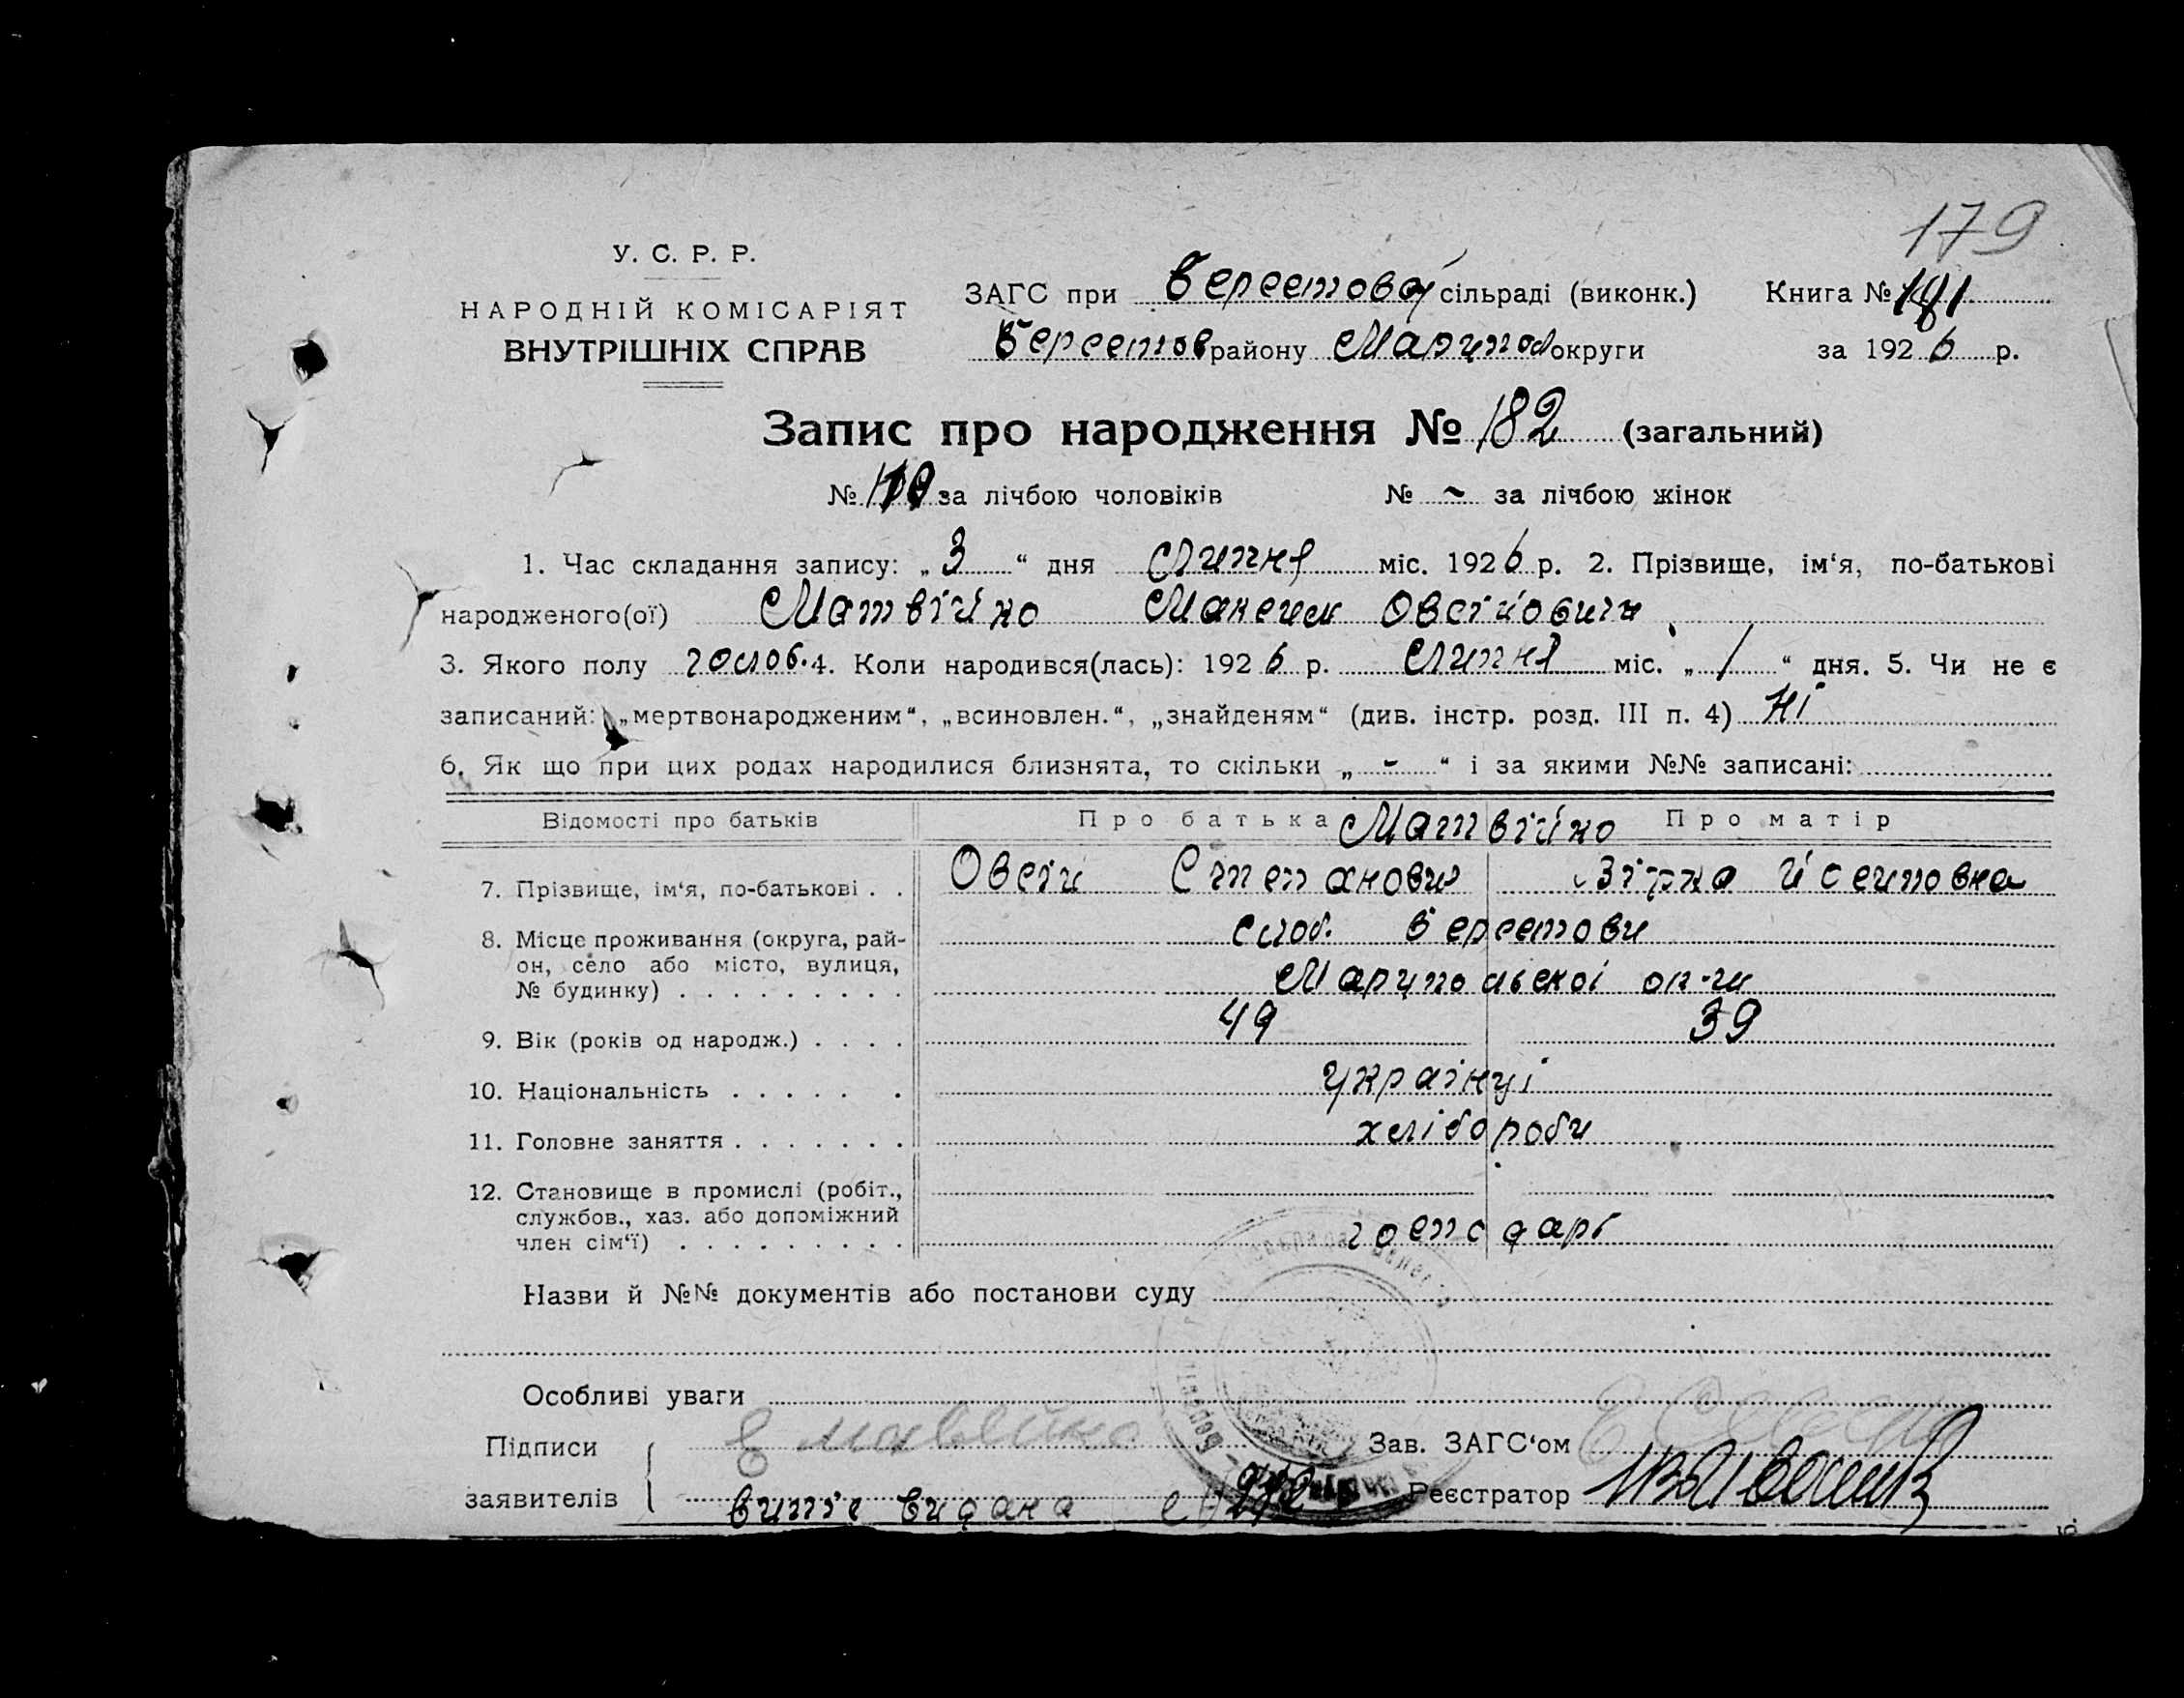 179
У. С. Р. Р.
НАРОДНІЙ КОМІСАРІЯТ
ВНУТРІШНІХ СПРАВ
ЗАГС при Берестовој сільраді (виконк.) Книга № 181
Берестов району Маріюпол округи за 1926 р.
Запис про народження № 182 (загальний)
№ за лічбою чоловіків № ~ за лічбою жінок
1. Час складання запису: „3“ дня Липня міс. 1926 р. 2. Прізвище, ім‘я, по-батькові
народженого(ої) Матвійко Максим Овсійович
3. Якого полу голов. 4. Коли народився(лась): 1926 р. Липня міс. „1“ дня. 5. Чи не є
записаний: „мертвонародженим“, „всиновлен.“, „знайденям“ (див. інстр. розд. III п. 4) Ні
6. Як що при цих родах народилися близнята, то скільки „-“ і за якими №№ записані:
Відомості про батьків Про батька Матвійко Про матір
7. Прізвище, ім‘я, по-батькові . . Овсій Степанович Йосиповна
8. Місце проживання (округа, рай-
он, село або місто, вулиця,
№ будинку) . . . . . . . . .
слоб. Берестови
Марупольскої ок-ги
9. Вік (років од народж.) . . . . 49 39
10. Національність . . . . . . українці
11. Головне заняття . . . . . . . хлібороби
12. Становище в промислі (робіт.,
службов., хаз. або допоміжний
член сім‘ї) . . . . . . . . . господарі
Назви й №№ документів або постанови суду
Особливі уваги
Підписи Е Мавейко Зав. ЗАГС‘ом
заявителів Реєстратор
видана